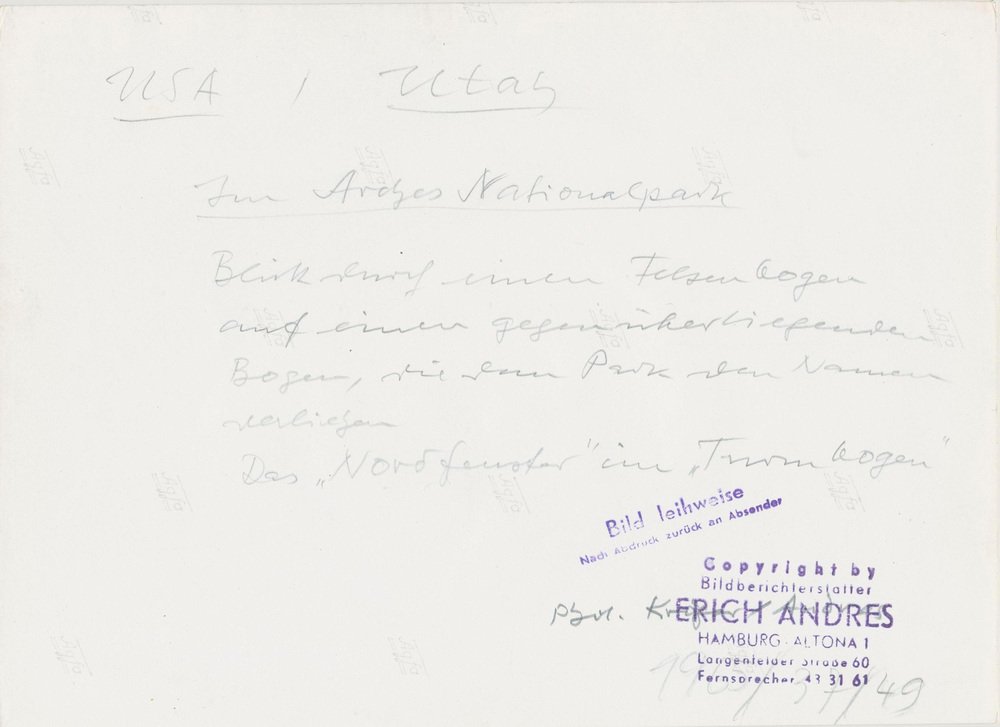 USA / Utah
Im Arches Nationalpark
Blick durch einen Felsenbogen
auf einen gegenüberliegenden
Bogen, die dem Park den Namen
verliehen
Das „Nordfenster" im „Turmbogen"
Bild leihweise
Nach Abdruck zurück an Absender
Copyright by
Bildberichterstatter
ERICH ANDRES
HAMBURG-ALTONA 1
Langenfelder Straße 60
Fernsprecher 43 31 61
/49
Agfa